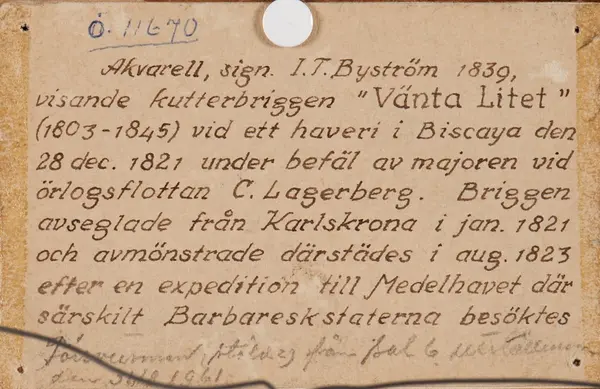 Ö. 11670
Akvarell, sign. I.T. Byström 1839,
visande kutterbriggen "Vänta Litet"
(1803-1845) vid ett haveri i Biscaya den
28 dec. 1821 under befäl av majoren vid
örlogsflottan C. Lagerberg. Briggen
avseglade från Karlskrona i jan. 1821
och avmönstrade därstädes i aug. 1823
efter en expedition till Medelhavet där
särskilt Barbareskstaterna besöktes
från sal 6
den 1961